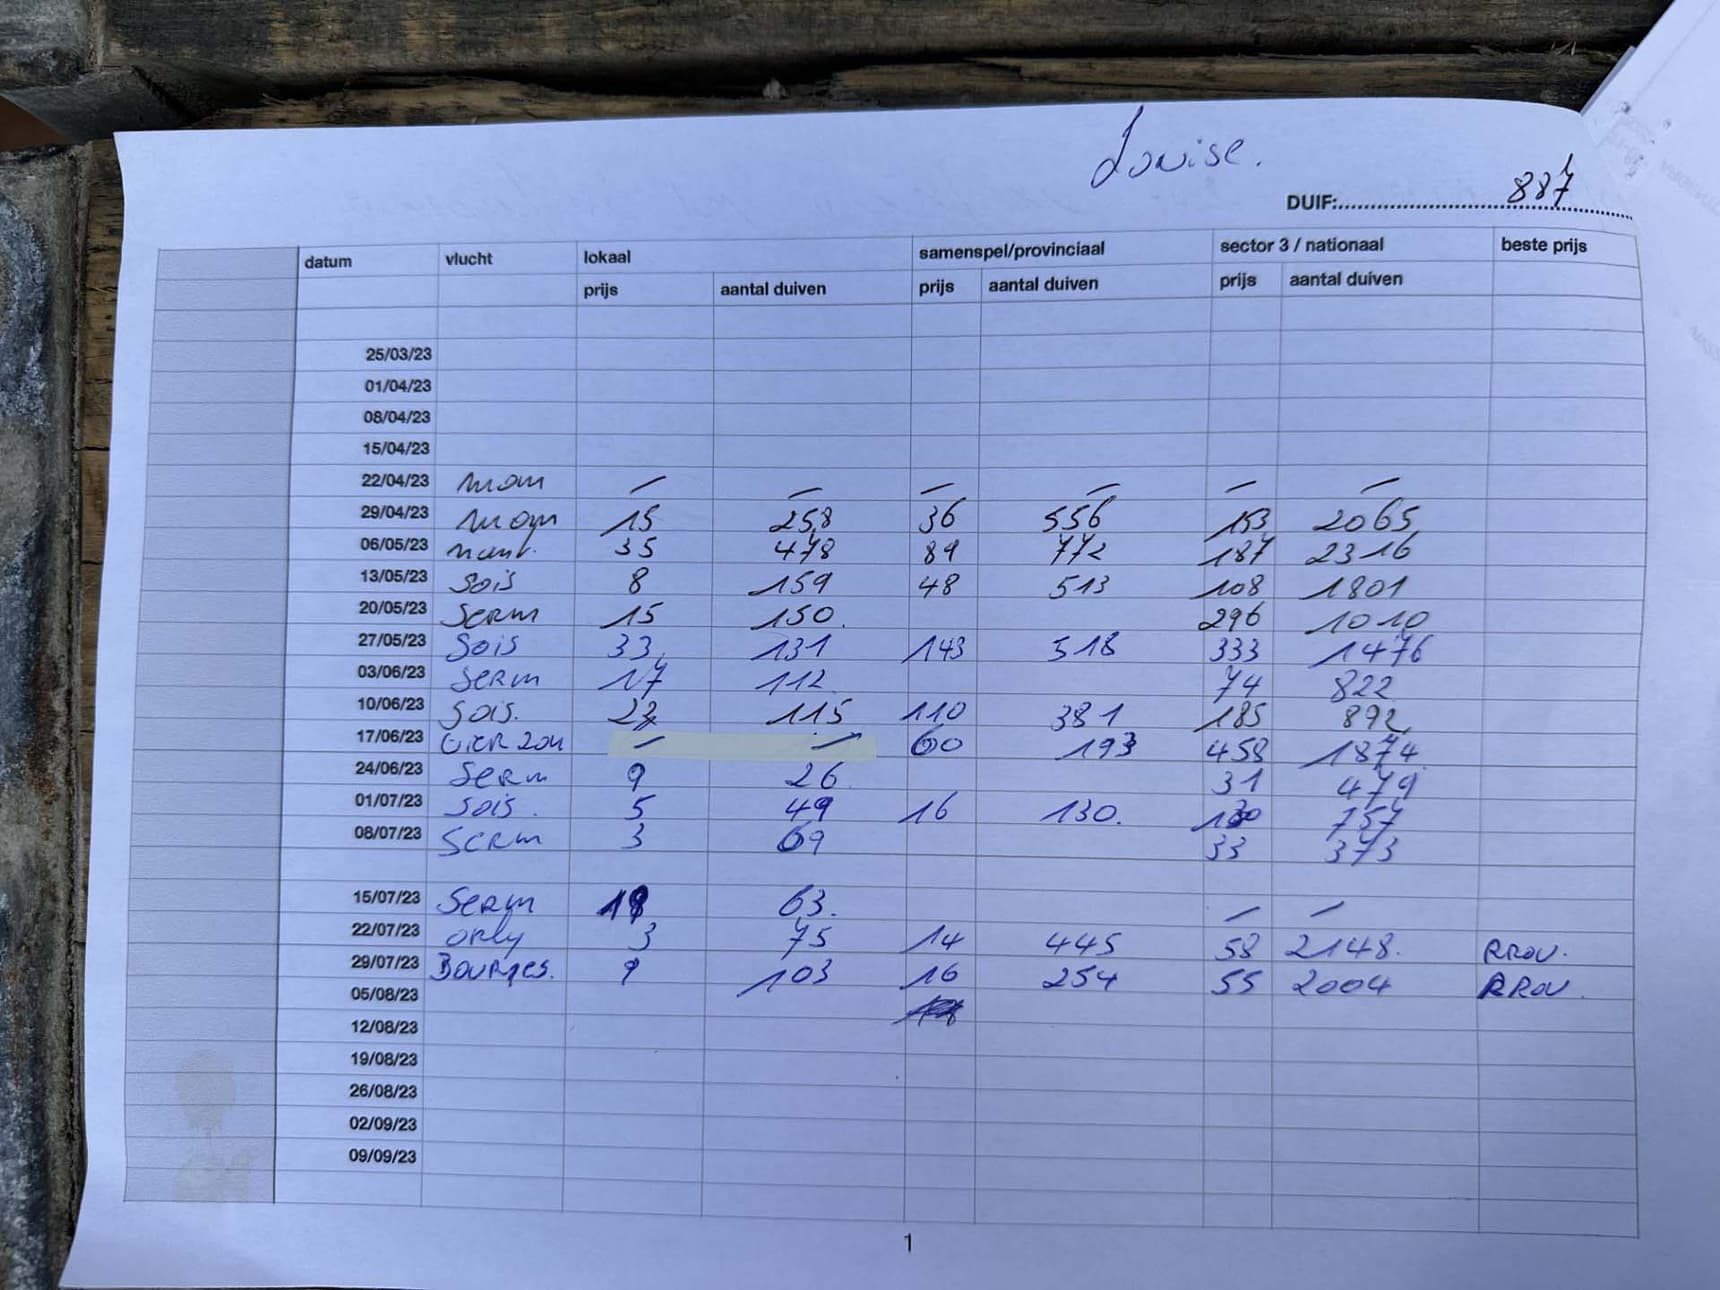 Louise.
DUIF:.......... 887
datum vlucht lokaal samenspel/provinciaal sector 3 / nationaal beste prijs
prijs aantal duiven prijs aantal duiven prijs aantal duiven
25/03/23
01/04/23
08/04/23
15/04/23
22/04/23 mom — — — — — —
29/04/23 15 258 36 556 153 2065
06/05/23 nant. 35 478 89 772 187 2316
13/05/23 Sois 8 159 48 513 108 1801
20/05/23 Serm 15 150. 296 1010
27/05/23 Sois 33 131 143 518 333 1476
03/06/23 Serm 17 112 74 822
10/06/23 Sois. 115 110 381 185 892
17/06/23 vierzon — — 60 193 458 1874
24/06/23 Serm 9 26 31 479
01/07/23 Sois. 5 49 16 130. 757
08/07/23 Serm 3 69 33 373
15/07/23 Serm 63. — —
22/07/23 orly 3 75 14 445 58 2148. PROV.
29/07/23 Bourges. 9 103 16 254 55 2004 PROV.
05/08/23
12/08/23
19/08/23
26/08/23
02/09/23
09/09/23
1